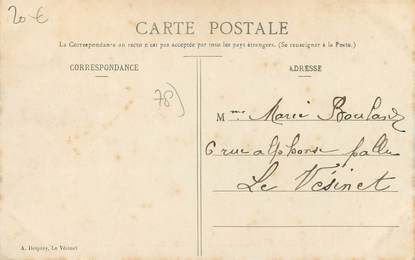 20 €
CARTE POSTALE
La Correspondance au recto n'est pas acceptée par tous les pays étrangers. (Se renseigner à la Poste.)
CORRESPONDANCE
ADRESSE
78)
Mme Marie Boulard
6 rue alphonse pallu
Le Vésinet
A. Despée, Le Vésinet